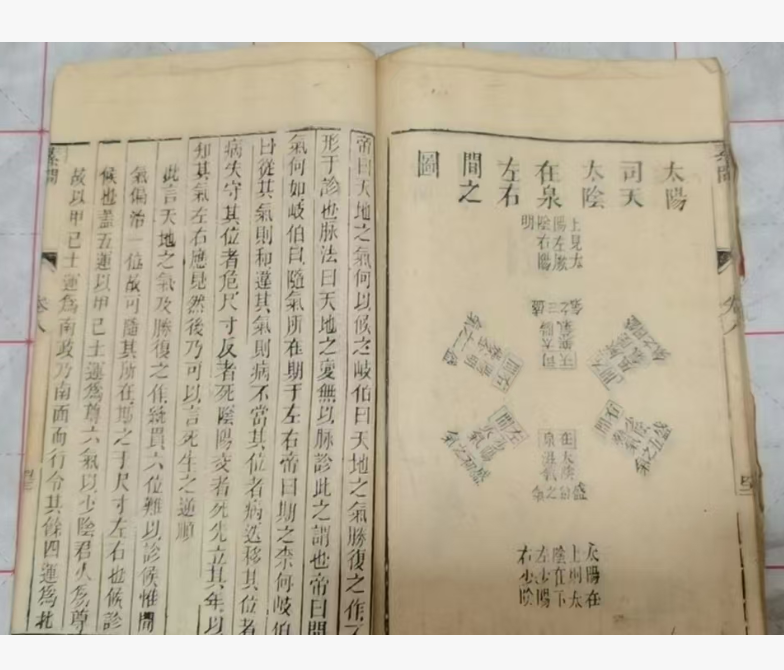 太陽
司天
太陰
在泉
左右
間之
圖
上見太
陽左厥
陰右陽
明
司天
太陽
在泉
太陰
左間
右間
太陽在
上則太
陰在下
左少陽
右少陰
素問
卷八
帝曰天地之氣何以候之岐伯曰天地之氣勝復之作不
形于診也脉法曰天地之變無以脉診此之謂也帝曰間
氣何如岐伯曰隨氣所在期于左右帝曰期之柰何岐伯
曰從其氣則和違其氣則病不當其位者病迭移其位者
病失守其位者危尺寸反者死陰陽交者死先立其年以
知其氣左右應見然後乃可以言死生之逆順
此言天地之氣及勝復之作 貫六位難以診候惟間
氣偏治一位故可隨其所在期之于尺寸左右也候診
候也蓋五運以甲己土運爲尊六氣以少陰君火爲尊
故以甲己土運爲南政乃南面而行令其餘四運爲北
素問
卷八